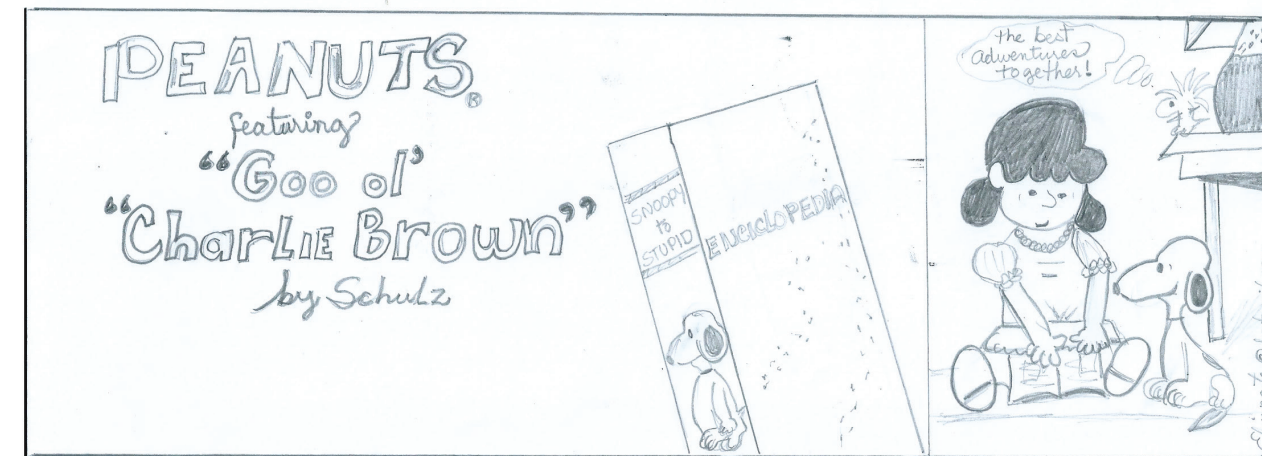 PEANUTS®
featuring
"Goo ol'
"Charlie Brown"
by Schulz
SNOOPY
to
STUPID
ENCICLOPEDIA
the best
adventures
together!